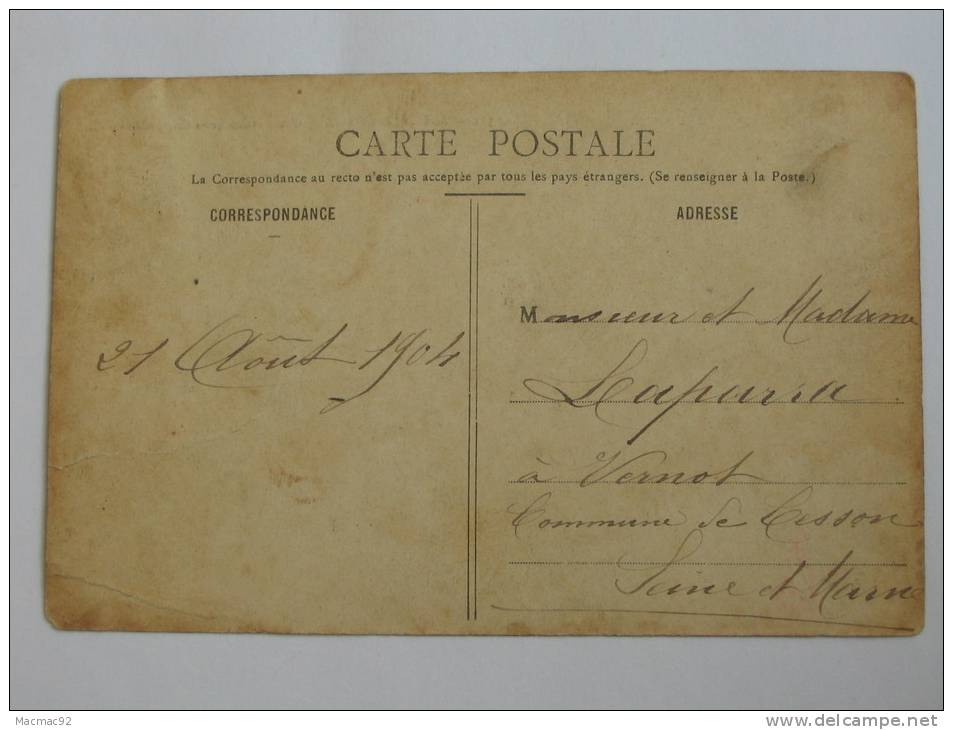 CARTE POSTALE
La Correspondance au recto n'est pas acceptée par tous les pays étrangers. (Se renseigner à la Poste.)
CORRESPONDANCE
21 Août 1904
ADRESSE
Monsieur et Madame
Laparra
à Vernot
Commune de Cesson
Seine et Marne
Macmac92
www.delcampe.net